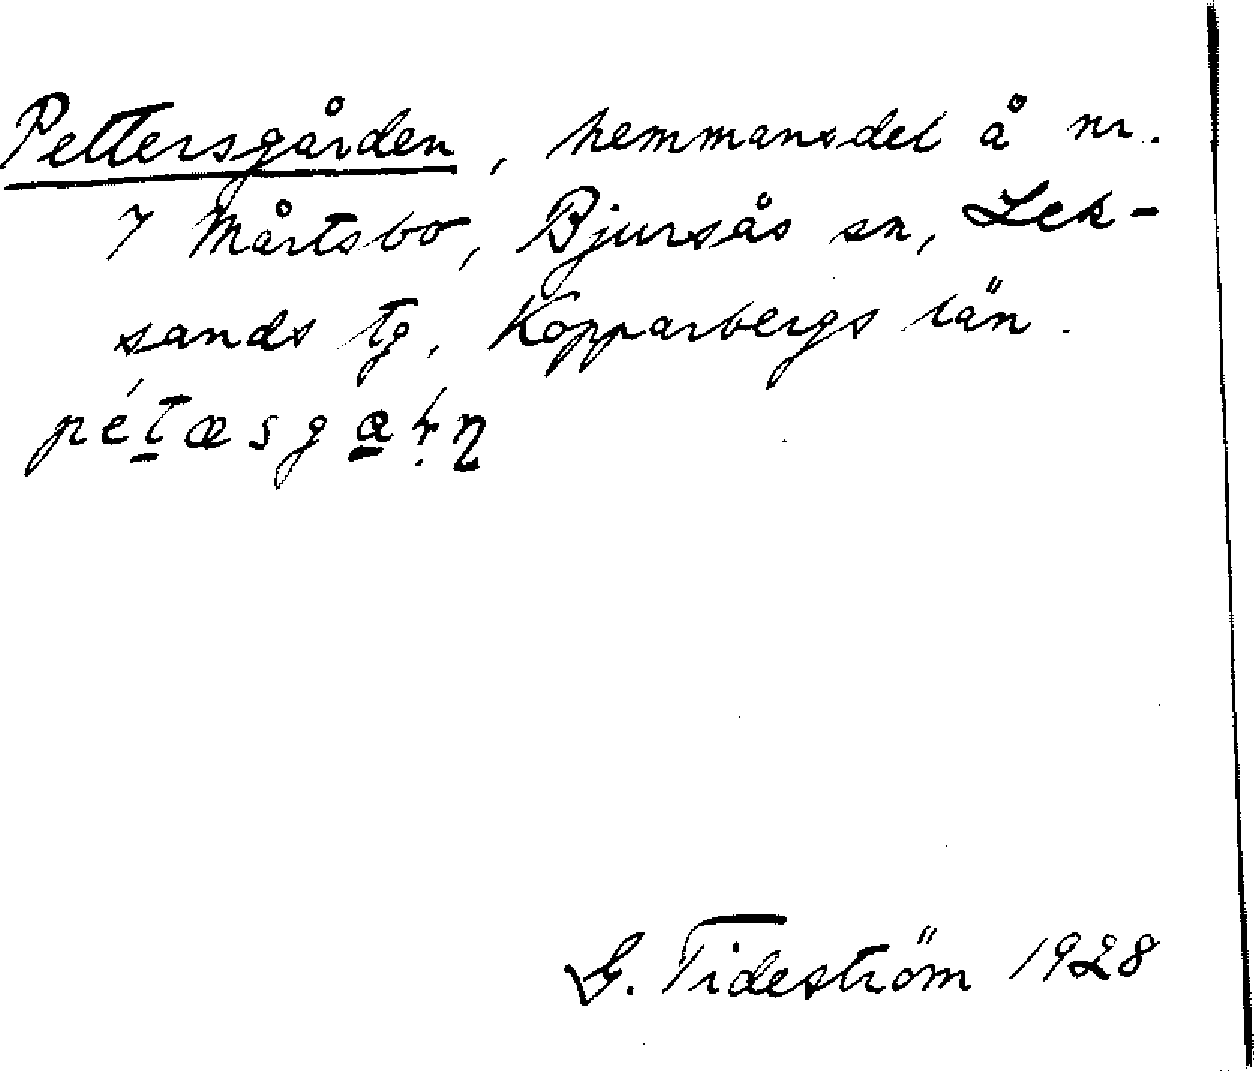 Pettersgården, hemmansdel å nr.
7 Mårtsbo, Bjursås sn, Lek-
sands tg, Kopparbergs län.
G. Tideström 1928